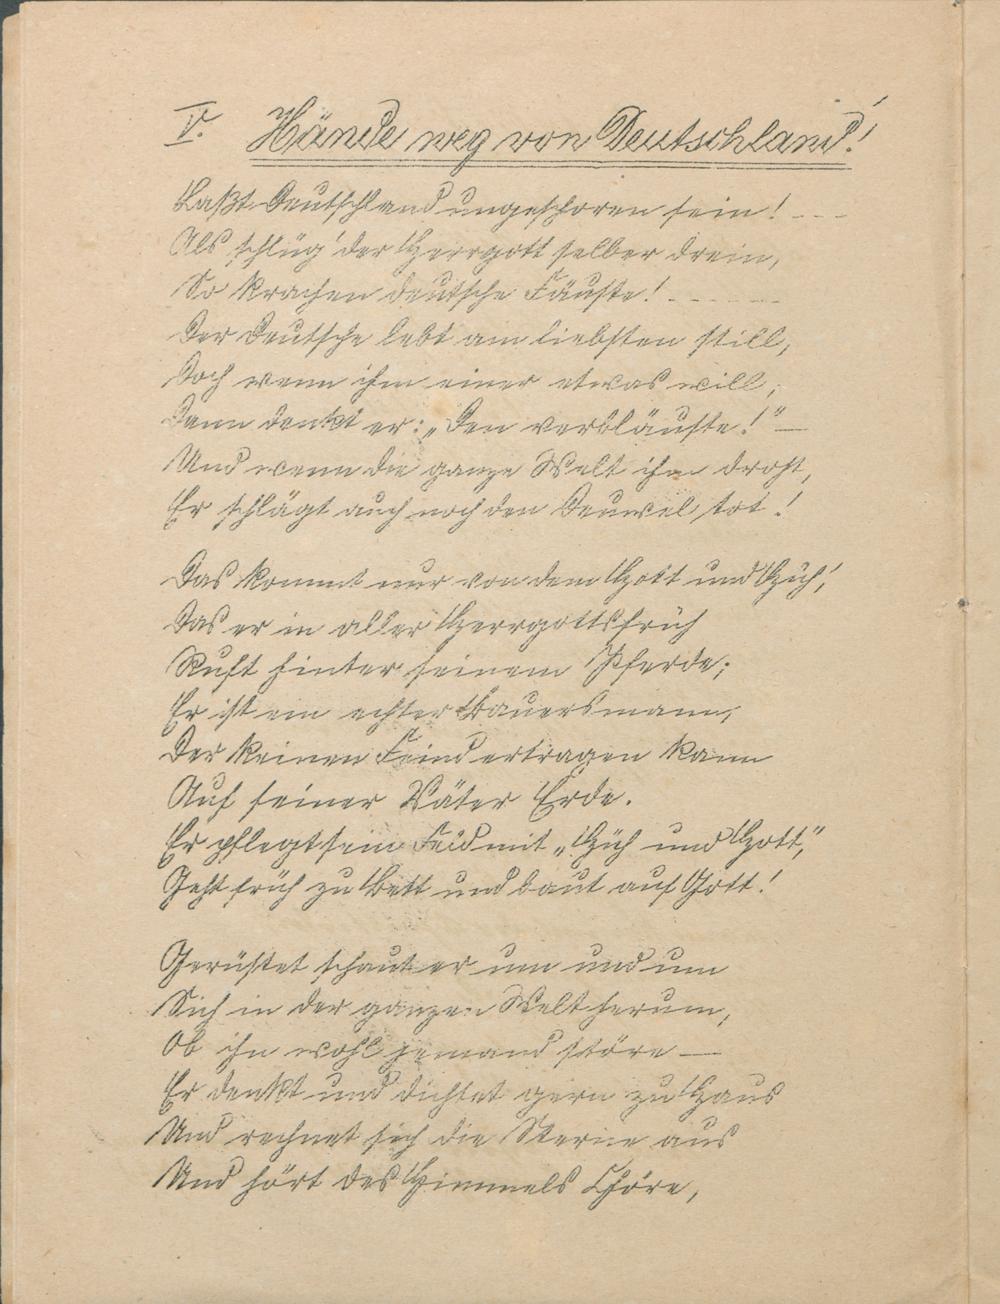 V. Hände weg von Deutschland!
Laßt Deutschland ungeschoren sein! - - -
Als schlüg' der Herrgott selber drein,
So krachen deutsche Fäuste! - - - - - -
Der Deutsche lebt am liebsten still,
Doch wenn ihm einer etwas will,
Dann denkt er: „Den verbläuste!" —
Und wenn die ganze Welt ihm droht,
Er schlägt auch noch den Deuwel tot!
Das kommt nur von dem Hott und Hüh,
Das er in aller Herrgottsfrüh
Ruft hinter seinem Pferde;
Er ist ein echter Bauersmann,
Der keinen Feind ertragen kann
Auf seiner Väter Erde.
Er pflegt sein Feld mit „Hüh und Hott",
Geht früh zu Bett und baut auf Gott!
Gerüstet schaut er um und um
Sich in der ganzen Welt herum,
Ob ihn wohl jemand störe —
Er denkt und dichtet gern zu Haus
Und rechnet sich die Sterne aus
Und hört des Himmels Chöre,